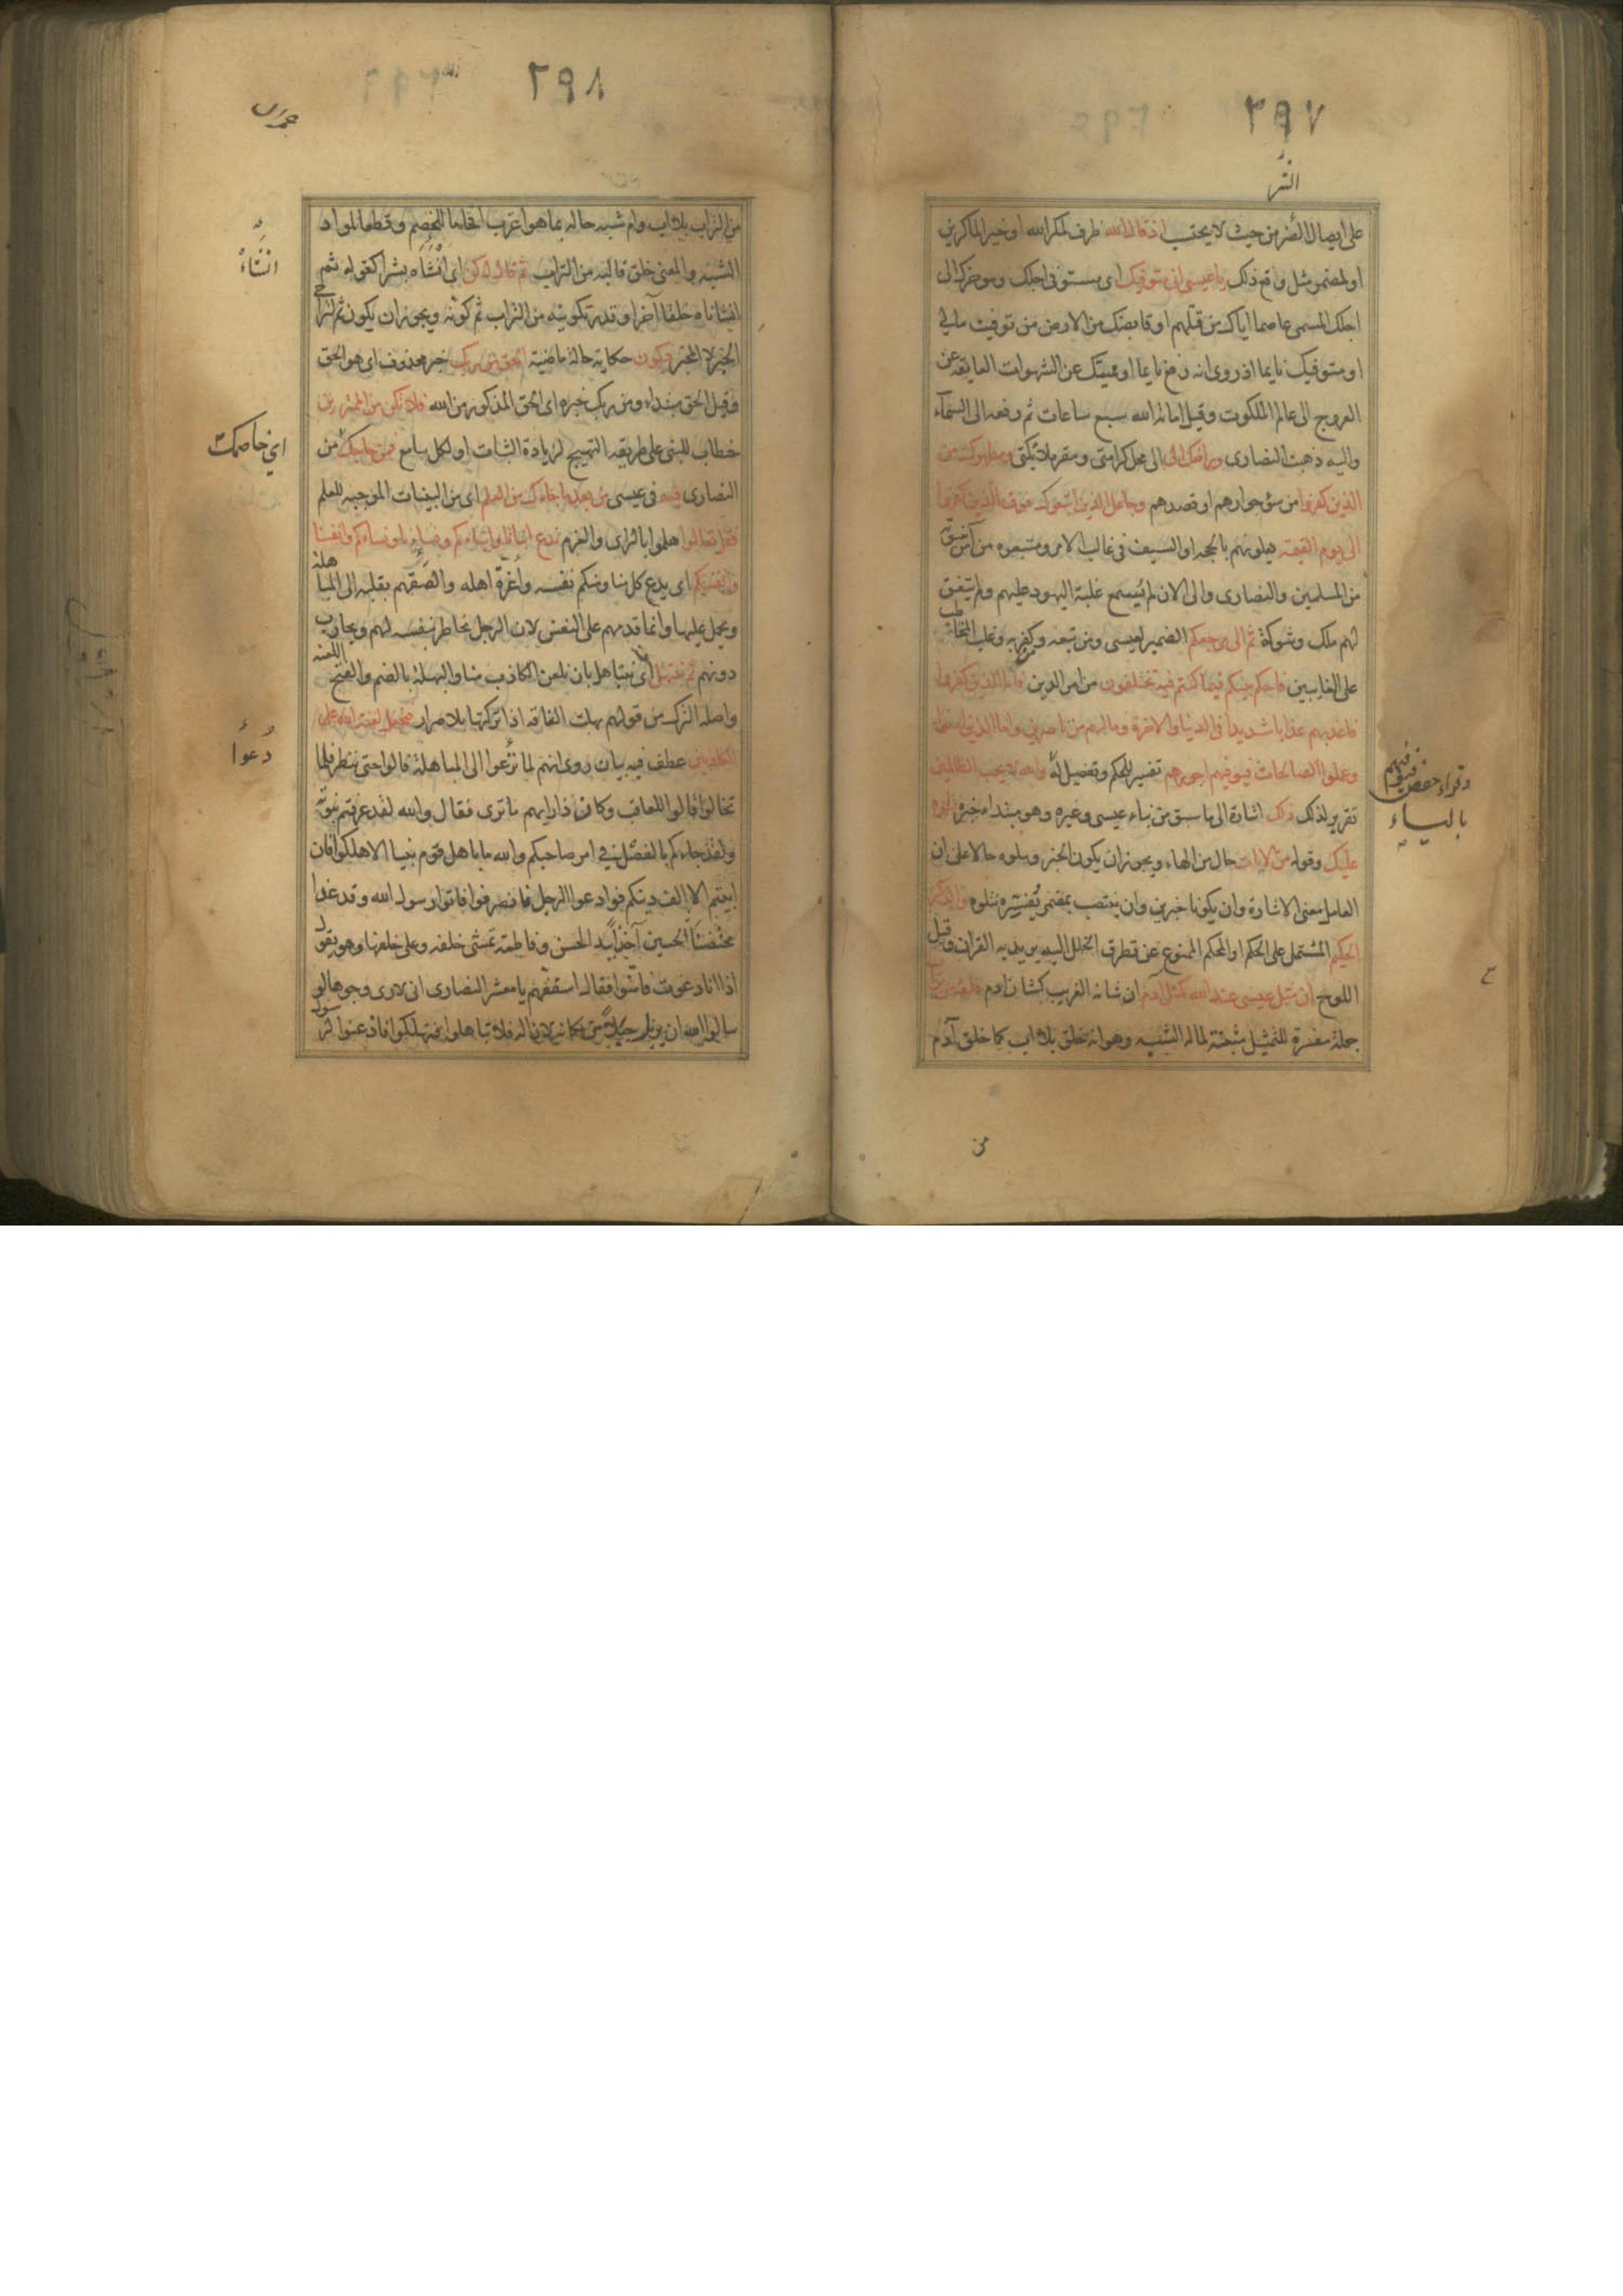 ٣٩٧
على ايصال الضر من حيث لا يحتسب اذ قال الله ظرف لمكر الله او خير الماكرين
او لمضمر مثل وقع ذلك يا عيسى انى متوفيك اى مستوفى اجلك وموخرك الى
اجلك المسمى عاصما اياك من قتلهم او قابضك من الارض من توفيت مالى
او متوفيك نايما اذ روى انه رفع نايما او مميتك عن الشهوات العايقة عن
العروج الى عالم الملكوت وقيل اماته الله سبع ساعات ثم رفعه الى السماء
واليه ذهبت النصارى ورافعك الى الى محل كرامتى ومقر ملائكتى ومطهرك من
الذين كفروا من سؤ جوارهم او قصدهم وجاعل الذين اتبعوك فوق الذين كفروا
الى يوم القيمة يعلونهم بالحجة او السيف فى غالب الامر ومتبعوه من آمن بنبوته
من المسلمين والنصارى والى الان لم يسمع غلبة اليهود عليهم ولم يتفق
لهم ملك وشوكة ثم الى مرجعكم الضمير لعيسى ومن تبعه وكفر به وغلب المخاطب
على الغايبين فاحكم بينكم فيما كنتم فيه تختلفون من امر الدين فاما الذين كفروا
فاعذبهم عذابا شديدا فى الدنيا والاخرة وما لهم من ناصرين واما الذين امنوا
وعملوا الصالحات فيوفيهم اجورهم تفسير للحكم وتفصيل له والله لا يحب الظالمين
وقراء حفص فيوفيهم
بالياء
تقرير لذلك ذلك اشارة الى ما سبق من نباء عيسى وغيره وهو مبتداء خبره نتلوه
عليك وقوله من الايات حال من الهاء ويجوز ان يكون الخبر ونتلوه حالا على ان
العامل معنى الاشارة وان يكونا خبرين وان ينتصب بمضمر يفسره نتلوه والذكر
الحكيم المشتمل على الحكم او المحكم الممنوع عن تطرق الخلل اليه يريد به القران وقيل
اللوح ان مثل عيسى عند الله كمثل آدم ان شانه الغريب كشان ادم خلقه من تراب
جملة مفسرة للتمثيل مبينة لما له الشبه وهو انه خلق بلا اب كما خلق آدم
من
٣٩٨
من التراب بلا اب وام شبه حاله بما هو اغرب افحاما للخصم وقطعا لمواد
الشبه والمعنى خلق قالبه من التراب ثم قال له كن اى انشأه بشرا كقوله ثم
انشأناه خلقا آخر او قدر تكوينه من التراب ثم كونه ويجوز ان يكون ثم لتراخى
الخبر لا المخبر فيكون حكاية حال ماضية الحق من ربك خبر محذوف اى هو الحق
وقيل الحق مبتداء ومن ربك خبره اى الحق المذكور من الله فلا تكن من الممترين
خطاب للنبى على طريقة التهييج لزيادة الثبات او لكل سامع فمن حاجك من
اي خاصمك
النصارى فيه فى عيسى من بعد ما جاءك من العلم اى من البينات الموجبه للعلم
فقل تعالوا هلموا بالراى والعزم ندع ابناءنا وابناءكم ونساءنا ونساءكم وانفسنا
وانفسكم اى يدع كل منا ومنكم نفسه واعزة اهله والصقهم بقلبه الى المباهلة
ويحمل عليها وانما قدمهم على النفس لان الرجل يخاطر بنفسه لهم ويحارب
دونهم ثم نبتهل اى نتباهل بان نلعن الكاذب منا والبهلة بالضم والفتح اللعنه
واصله الترك من قولهم بهلت الناقه اذا تركتها بلا صرار فنجعل لعنة الله على
الكاذبين عطف فيه بيان روى انهم لما دعوا الى المباهلة قالوا حتى ننظر فلما
دُعوا
تخالوا قالوا للعاقب وكان ذا رايهم ما ترى فقال والله لقد عرفتم نبوته
ولقد جاءكم بالفصل فى امر صاحبكم والله ما باهل قوم نبيا الا هلكوا فان
ابيتم الا الف دينكم فوادعوا الرجل فانصرفوا فاتوا رسول الله وقد غدا
محتضنا الحسين آخذا بيد الحسن وفاطمة تمشى خلفه وعلى خلفها وهو يقول
اذا انا دعوت فامنوا فقال اسقفهم يا معشر النصارى انى لارى وجوها لو
سالوا الله ان يزيل جبلا من مكانه لازاله فلا تباهلوا فتهلكوا فاذعنوا لرسول